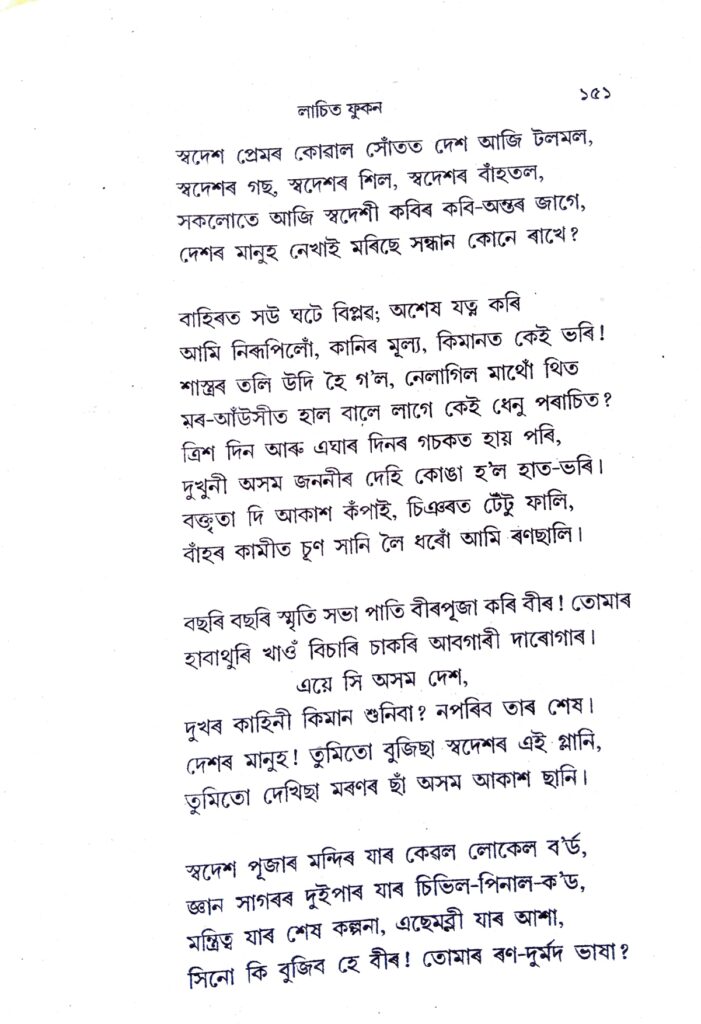 লাচিত ফুকন
১৫১
স্বদেশ প্ৰেমৰ কোৱাল সোঁতত দেশ আজি টলমল,
স্বদেশৰ গছ, স্বদেশৰ শিল, স্বদেশৰ বাঁহতল,
সকলোতে আজি স্বদেশী কবিৰ কবি-অন্তৰ জাগে,
দেশৰ মানুহ নেখাই মৰিছে সন্ধান কোনে ৰাখে?
বাহিৰত সউ ঘটে বিপ্লৱ; অশেষ যত্ন কৰি
আমি নিৰূপিলোঁ, কানিৰ মূল্য, কিমানত কেই ভৰি!
শাস্ত্ৰৰ তলি উদি হৈ গ'ল, নেলাগিল মাথোঁ থিত
মৰ-আঁউসীত হাল বালে লাগে কেই ধেনু পৰাচিত?
ত্ৰিশ দিন আৰু এঘাৰ দিনৰ গচকত হায় পৰি,
দুখুনী অসম জননীৰ দেহি কোঙা হ'ল হাত-ভৰি।
বক্তৃতা দি আকাশ কঁপাই, চিঞৰত টেঁটু ফালি,
বাঁহৰ কামীত চূণ সানি লৈ ধৰোঁ আমি ৰণছালি।
বছৰি বছৰি স্মৃতি সভা পাতি বীৰপূজা কৰি বীৰ! তোমাৰ
হাবাথুৰি খাওঁ বিচাৰি চাকৰি আবগাৰী দাৰোগাৰ।
এয়ে সি অসম দেশ,
দুখৰ কাহিনী কিমান শুনিবা? নপৰিব তাৰ শেষ।
দেশৰ মানুহ! তুমিতো বুজিছা স্বদেশৰ এই গ্লানি,
তুমিতো দেখিছা মৰণৰ ছাঁ অসম আকাশ ছানি।
স্বদেশ পূজাৰ মন্দিৰ যাৰ কেৱল লোকেল ব'ৰ্ড,
জ্ঞান সাগৰৰ দুইপাৰ যাৰ চিভিল-পিনাল-ক'ড,
মন্ত্ৰিত্ব যাৰ শেষ কল্পনা, এছেমব্লী যাৰ আশা,
সিনো কি বুজিব হে বীৰ! তোমাৰ ৰণ-দুৰ্মদ ভাষা?